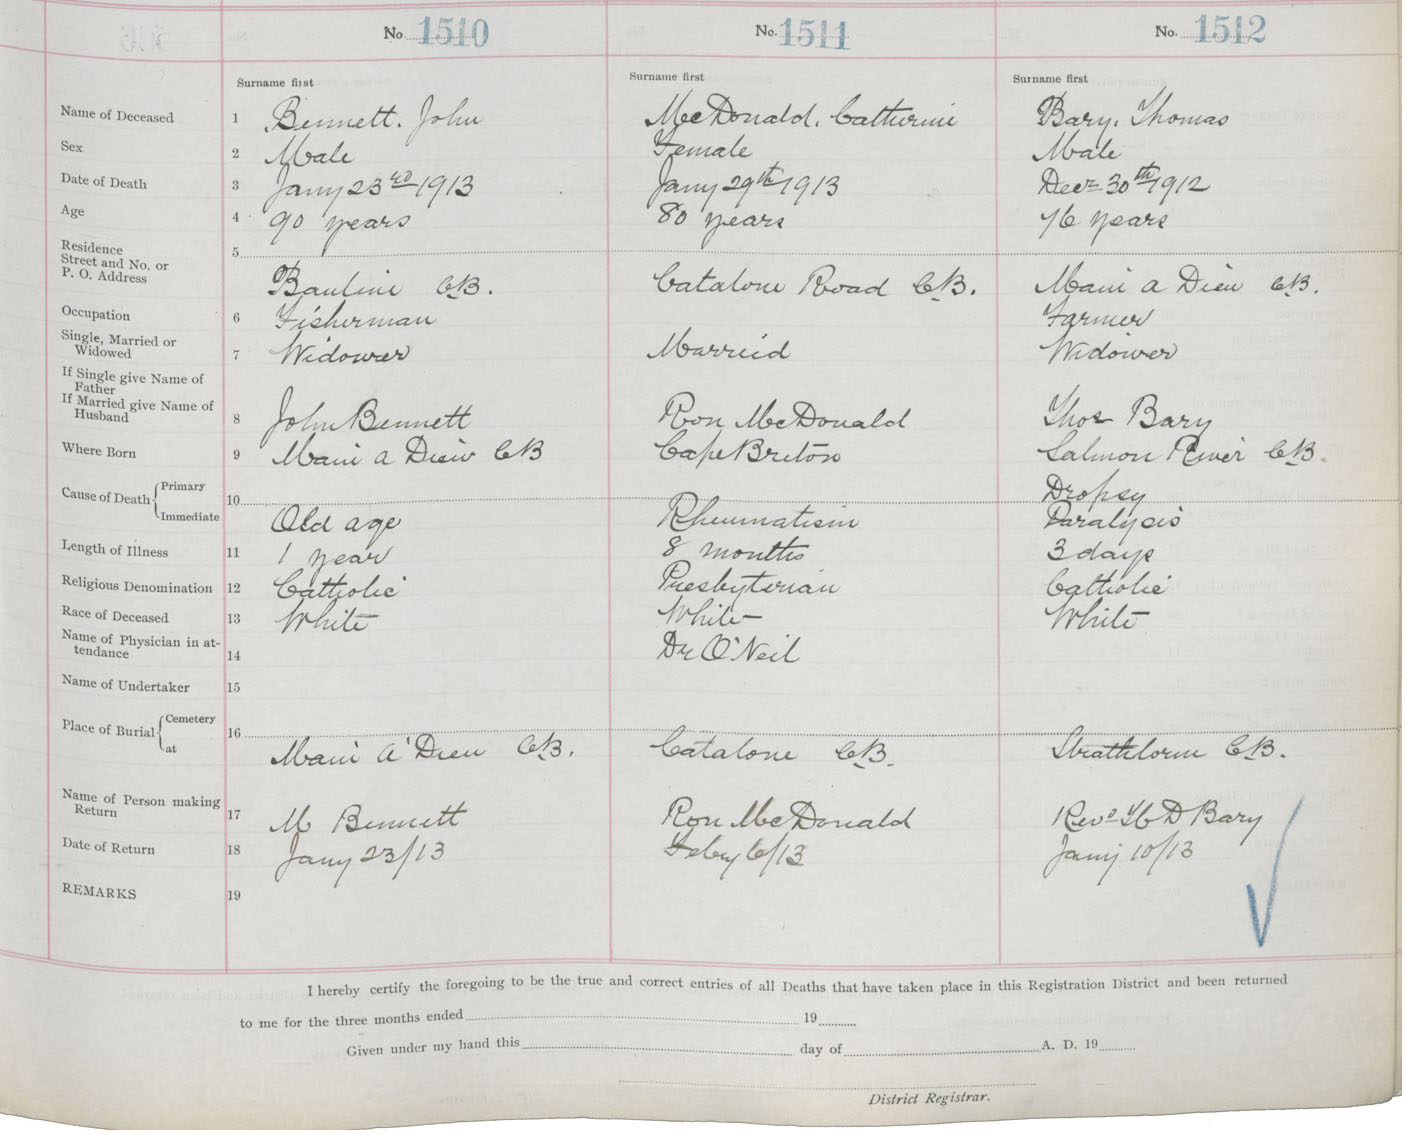 No. 1510 No. 1511 No. 1512
Surname first Surname first Surname first
Name of Deceased 1 Bennett. John McDonald. Catherine Bary. Thomas
Sex 2 Male Female Male
Date of Death 3 Jany 23rd 1913 Jany 29th 1913 Decr 30th 1912
Age 4 90 years 80 years 76 years
Residence
Street and No. or
P. O. Address
5 Bauline C.B. Catalone Road C.B. Main a Dieu C.B.
Occupation 6 Fisherman Farmer
Single, Married or
Widowed 7 Widower Married Widower
If Single give Name of
Father
If Married give Name of
Husband 8 John Bennett Ron McDonald Thos Bary
Where Born 9 Main a Dieu CB Cape Breton Salmon River C.B.
Cause of Death Primary 10 Dropsy
Immediate Old age Rheumatism Paralysis
Length of Illness 11 1 year 8 months 3 days
Religious Denomination 12 Catholic Presbyterian Catholic
Race of Deceased 13 White White White
Name of Physician in at-
tendance 14 Dr O'Neil
Name of Undertaker 15
Place of Burial Cemetery 16
at Main A' Dieu C.B. Catalone C.B. Strathlorne C.B.
Name of Person making
Return 17 M Bennett Ron McDonald Revd D Bary
Date of Return 18 Jany 23/13 Feby 6/13 Jany 10/13
REMARKS 19
I hereby certify the foregoing to be the true and correct entries of all Deaths that have taken place in this Registration District and been returned
to me for the three months ended 19
Given under my hand this day of A. D. 19
District Registrar.